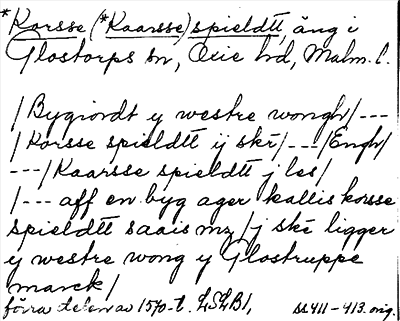 *Korsse (*Kaarsse) spieldtt, äng i
Glostorps sn, Oxie hd, Malm. l.
/Bygiordt y westre wongh/ ---
/Korsse spieldtt ij skr/ --- /Engh/
---/Kaarsse spieldtt j les/
/--- aff en byg ager kallis korsse
spieldtt saais mz /j skr ligger
y westre wong y Glostruppe
marck/
förra delen av 1570-t. LSLB1, ss 411-413. orig.